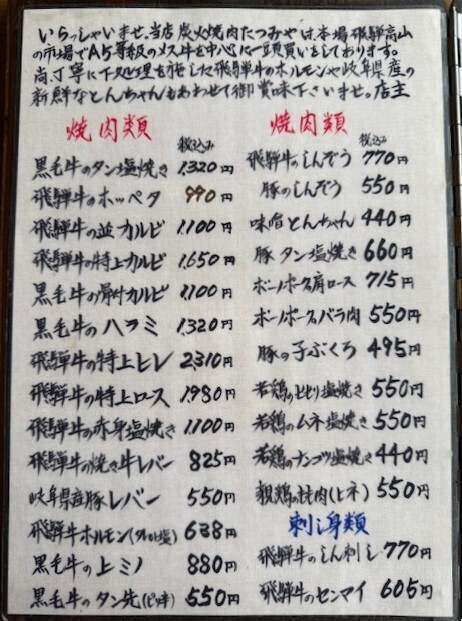 いらっしゃいませ。当店 炭火焼肉たつみやは、本場飛騨高山
の市場でA5等級のメス牛を中心に一頭買いをしております。
尚、丁寧に下処理を施した飛騨牛のホルモンや岐阜県産の
新鮮なとんちゃんもあわせて御賞味下さいませ。店主
焼肉類
税込み
黒毛牛のタン塩焼き 1,320円
飛騨牛のホッペタ 990円
飛騨牛の並カルビ 1,100円
飛騨牛の特上カルビ 1,650円
黒毛牛の骨付カルビ 1,100円
黒毛牛のハラミ 1,320円
飛騨牛の特上ヒレ 2,310円
飛騨牛の特上ロス 1,980円
飛騨牛の赤身塩焼き 1,100円
飛騨牛の焼き牛レバー 825円
岐阜県産豚レバー 550円
飛騨牛ホルモン(タレor塩) 638円
黒毛牛の上ミノ 880円
黒毛牛のタン先(ピリ辛) 550円
焼肉類
税込み
飛騨牛のしんぞう 770円
豚のしんぞう 550円
味噌とんちゃん 440円
豚タン塩焼き 660円
ボーノポーク肩ロース 715円
ボーノポークバラ肉 550円
豚の子ぶくろ 495円
若鶏のももり塩焼き 550円
若鶏のムネ塩焼き 550円
若鶏のナンコツ塩焼き 440円
親鶏の焼肉(ヒネ) 550円
刺し身類
飛騨牛のしん刺し 770円
飛騨牛のセンマイ 605円